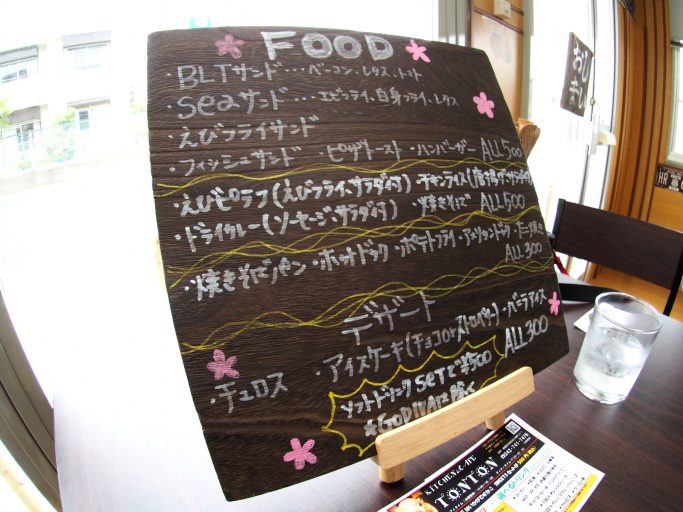 FOOD
・BLTサンド・・・ベーコン、レタス、トマト
・Seaサンド・・・エビフライ、白身フライ、レタス
・えびフライサンド
・フィッシュサンド ・ピザトースト ・ハンバーガー ALL500
・えびピラフ(えびフライ、サラダ付) ・チキンライス(唐揚げ・サラダ付)
・ドライカレー(ソーセージ・サラダ付) ・焼きそば ALL500
・焼きそばパン ・ホットドック ・ポテトフライ ・アメリカンドック
ALL 300
デザート
・チュロス ・アイスケーキ(チョコorストロベリー) ・バニラアイス
ALL300
ソフトドリンクSETで¥500
※GODIVAは除く
KITCHEN.CAFE
TONTON